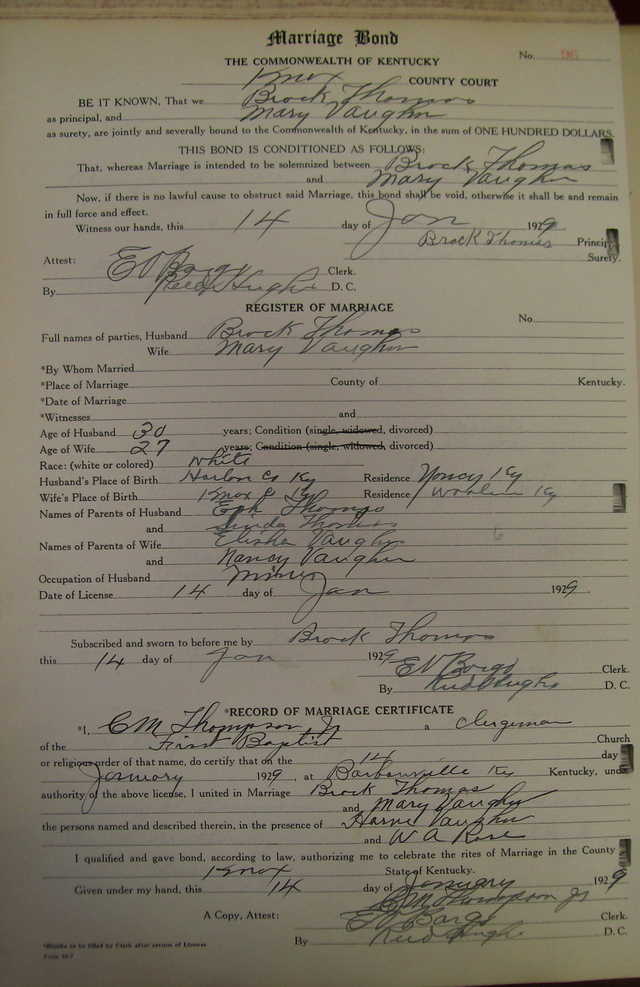 Marriage Bond
No. 
THE COMMONWEALTH OF KENTUCKY
Knox COUNTY COURT
BE IT KNOWN, That we Brock Thomas
as principal, and Mary Vaughn
as surety, are jointly and severally bound to the Commonwealth of Kentucky, in the sum of ONE HUNDRED DOLLARS.
THIS BOND IS CONDITIONED AS FOLLOWS:
That, whereas Marriage is intended to be solemnized between Brock Thomas
and Mary Vaughn
Now, if there is no lawful cause to obstruct said Marriage, this bond shall be void, otherwise it shall be and remain
in full force and effect.
Witness our hands, this 14 day of Jan 1929
Brock Thomas Princip
Surety.
Attest: Clerk.
By D. C.
REGISTER OF MARRIAGE
No
Full names of parties, Husband Brock Thomas
Wife Mary Vaughn
*By Whom Married
*Place of Marriage County of Kentucky.
*Date of Marriage
*Witnesses and
Age of Husband 30 years; Condition (single, widowed, divorced)
Age of Wife 27 years; Condition (single, widowed, divorced)
Race: (white or colored) white
Husband's Place of Birth Harlan Co Ky Residence Yancy Ky
Wife's Place of Birth Knox Co Ky Residence Ky
Names of Parents of Husband Thomas
and Thomas
Names of Parents of Wife Elisha Vaughn
and Nancy Vaughn
Occupation of Husband Miner
Date of License 14 day of Jan 1929.
Subscribed and sworn to before me by Brock Thomas
this 14 day of Jan 1929
Clerk.
By D. C.
*RECORD OF MARRIAGE CERTIFICATE
*I, C M Thompson Jr a Clergeman
of the First Baptist Church
or religious order of that name, do certify that on the 14 day
January 1929, at Barbourville Ky Kentucky, unde
authority of the above license, I united in Marriage Brock Thomas
and Mary Vaughn
the persons named and described therein, in the presence of Vaughn
and W A Rose
I qualified and gave bond, according to law, authorizing me to celebrate the rites of Marriage in the County
Knox State of Kentucky.
Given under my hand, this 14 day of January 1929
C M Thompson Jr
A Copy, Attest: Clerk.
By D. C.
*Blanks to be filled by Clerk after return of License